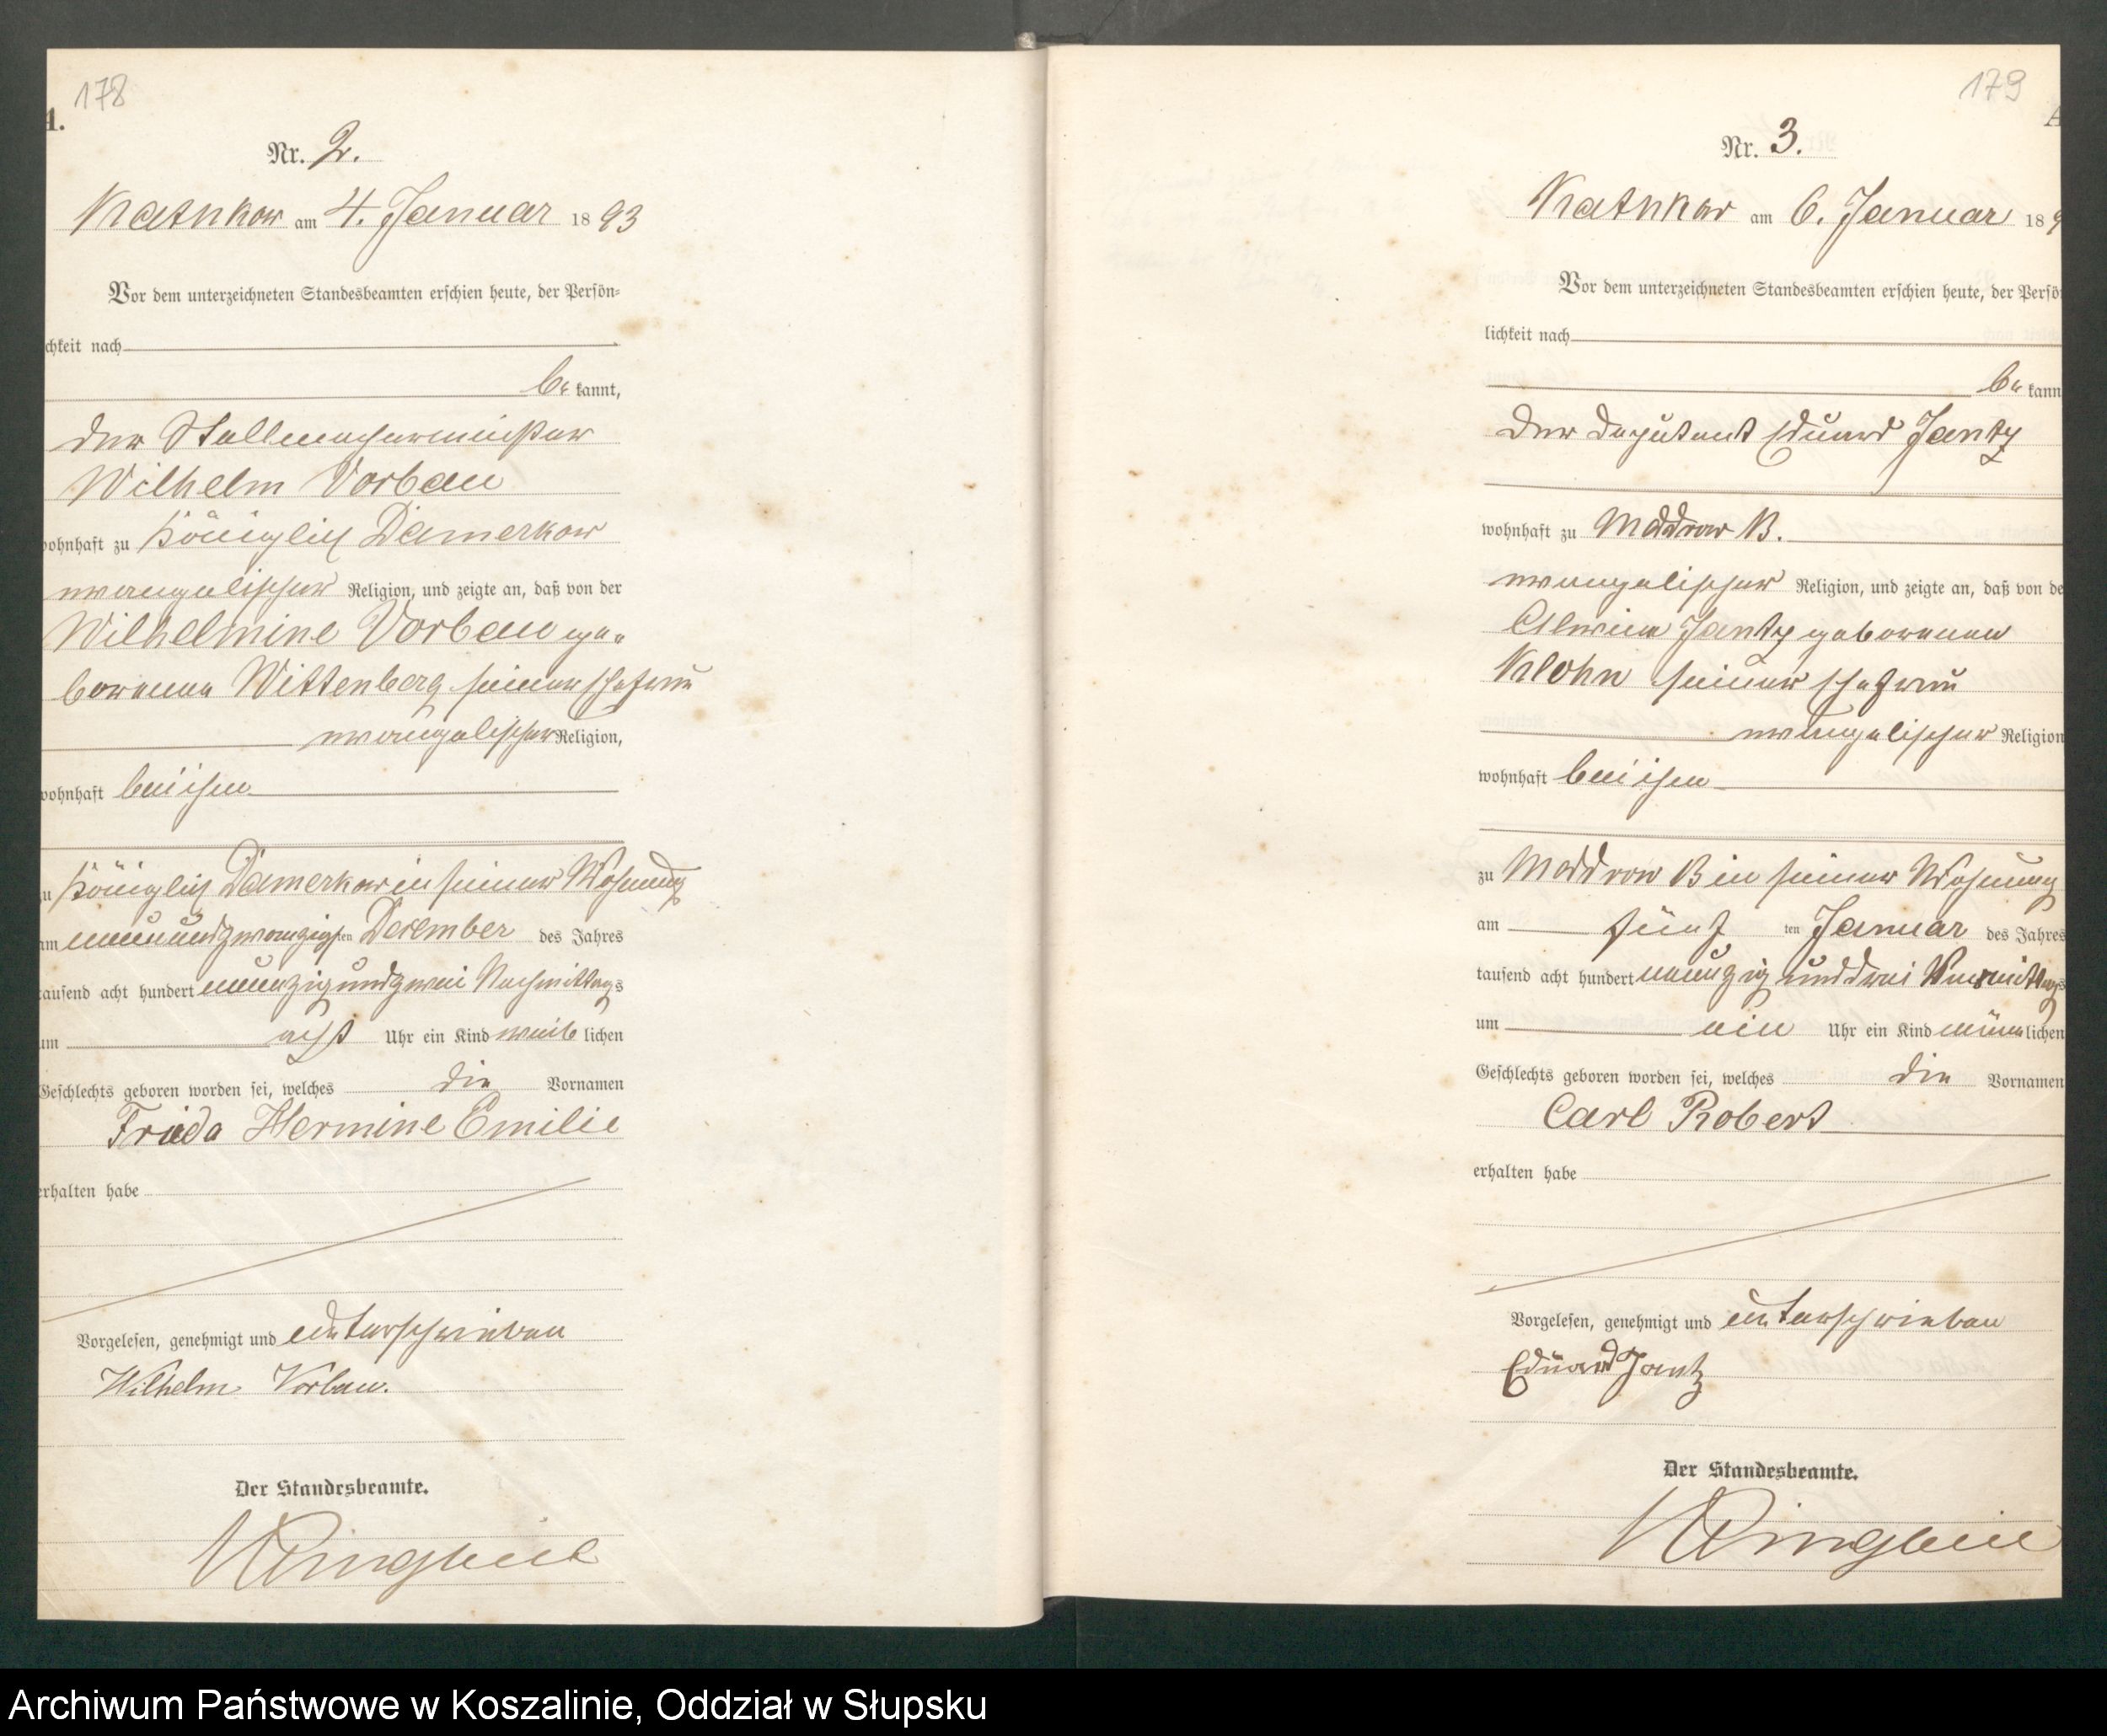 178
A.
Nr. 2.
Kathkow am 4. Januar 1893
Vor dem unterzeichneten Standesbeamten erschien heute, der Persön-
chkeit nach
be kannt,
der Stellmachermeister
Wilhelm Vorbau
wohnhaft zu Königlich Damerkow
evangelischer Religion, und zeigte an, daß von der
Wilhelmine Vorbau ge-
borenen Wittenberg seiner Ehefrau
evangelischer Religion,
wohnhaft bei ihm
zu Königlich Damerkow in seiner Wohnung
am neunundzwanzigsten December des Jahres
tausend acht hundert neunzig und zwei Nachmittags
um acht Uhr ein Kind weib lichen
Geschlechts geboren worden sei, welches die Vornamen
Frieda Hermine Emilie
erhalten habe
Vorgelesen, genehmigt und unterschrieben
Wilhelm Vorbau.
Der Standesbeamte.
179
A
Nr. 3.
Kathkow am 6. Januar 189
Vor dem unterzeichneten Standesbeamten erschien heute, der Persö
lichkeit nach
be kann
der Deputant Eduard Jantz
wohnhaft zu Moddrow B.
evangelischer Religion, und zeigte an, daß von de
Alwine Jantz geborenen
Klohn seiner Ehefrau
evangelischer Religion
wohnhaft bei ihm
zu Moddrow B in seiner Wohnung
am fünf ten Januar des Jahres
tausend acht hundert neunzig und drei Vormittags
um ein Uhr ein Kind männ lichen
Geschlechts geboren worden sei, welches die Vornamen
Carl Robert
erhalten habe
Vorgelesen, genehmigt und unterschrieben
Eduard Jantz
Der Standesbeamte.
Archiwum Państwowe w Koszalinie, Oddział w Słupsku